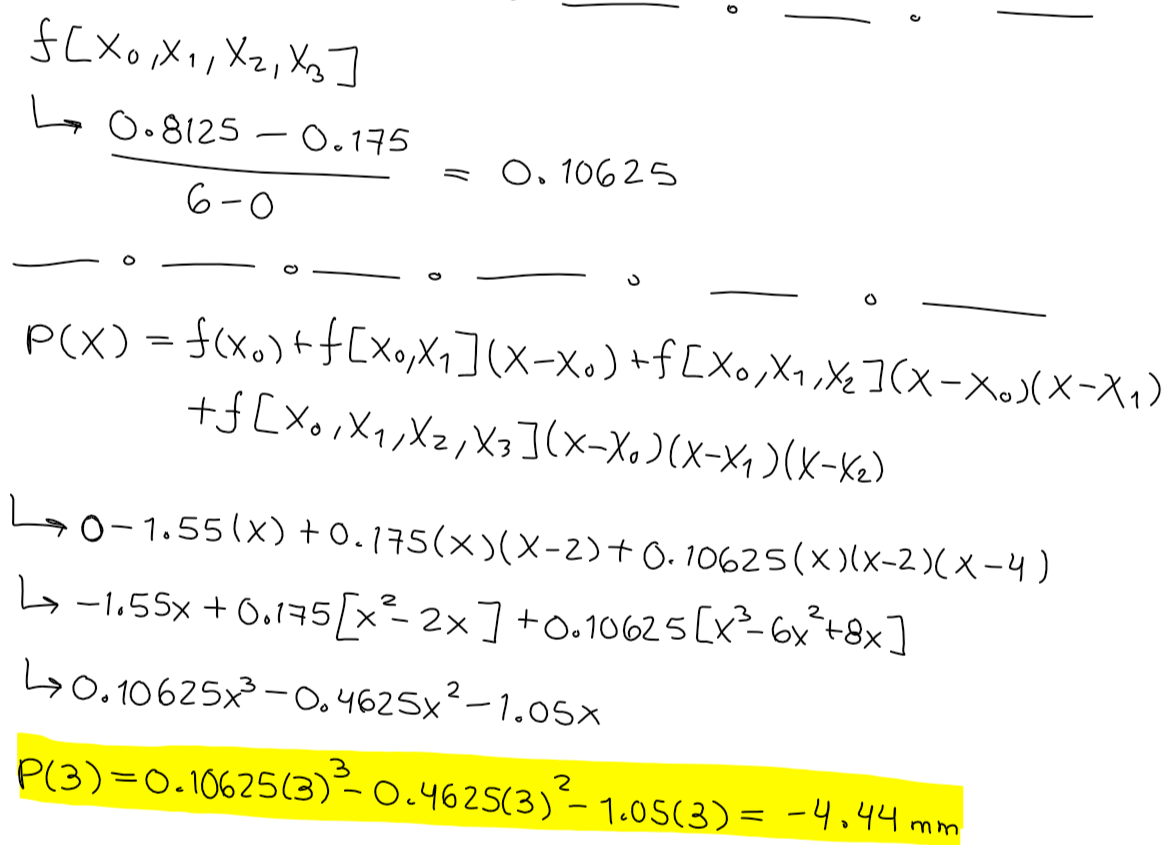 f[x₀,x₁,x₂,x₃]
↳ (0.8125 - 0.175)/(6-0) = 0.10625
P(x) = f(x₀)+f[x₀,x₁](x-x₀)+f[x₀,x₁,x₂](x-x₀)(x-x₁)
+f[x₀,x₁,x₂,x₃](x-x₀)(x-x₁)(x-x₂)
↳ 0-1.55(x)+0.175(x)(x-2)+0.10625(x)(x-2)(x-4)
↳ -1.55x+0.175[x²-2x]+0.10625[x³-6x²+8x]
↳ 0.10625x³-0.4625x²-1.05x
P(3)=0.10625(3)³-0.4625(3)²-1.05(3)= -4.44 mm